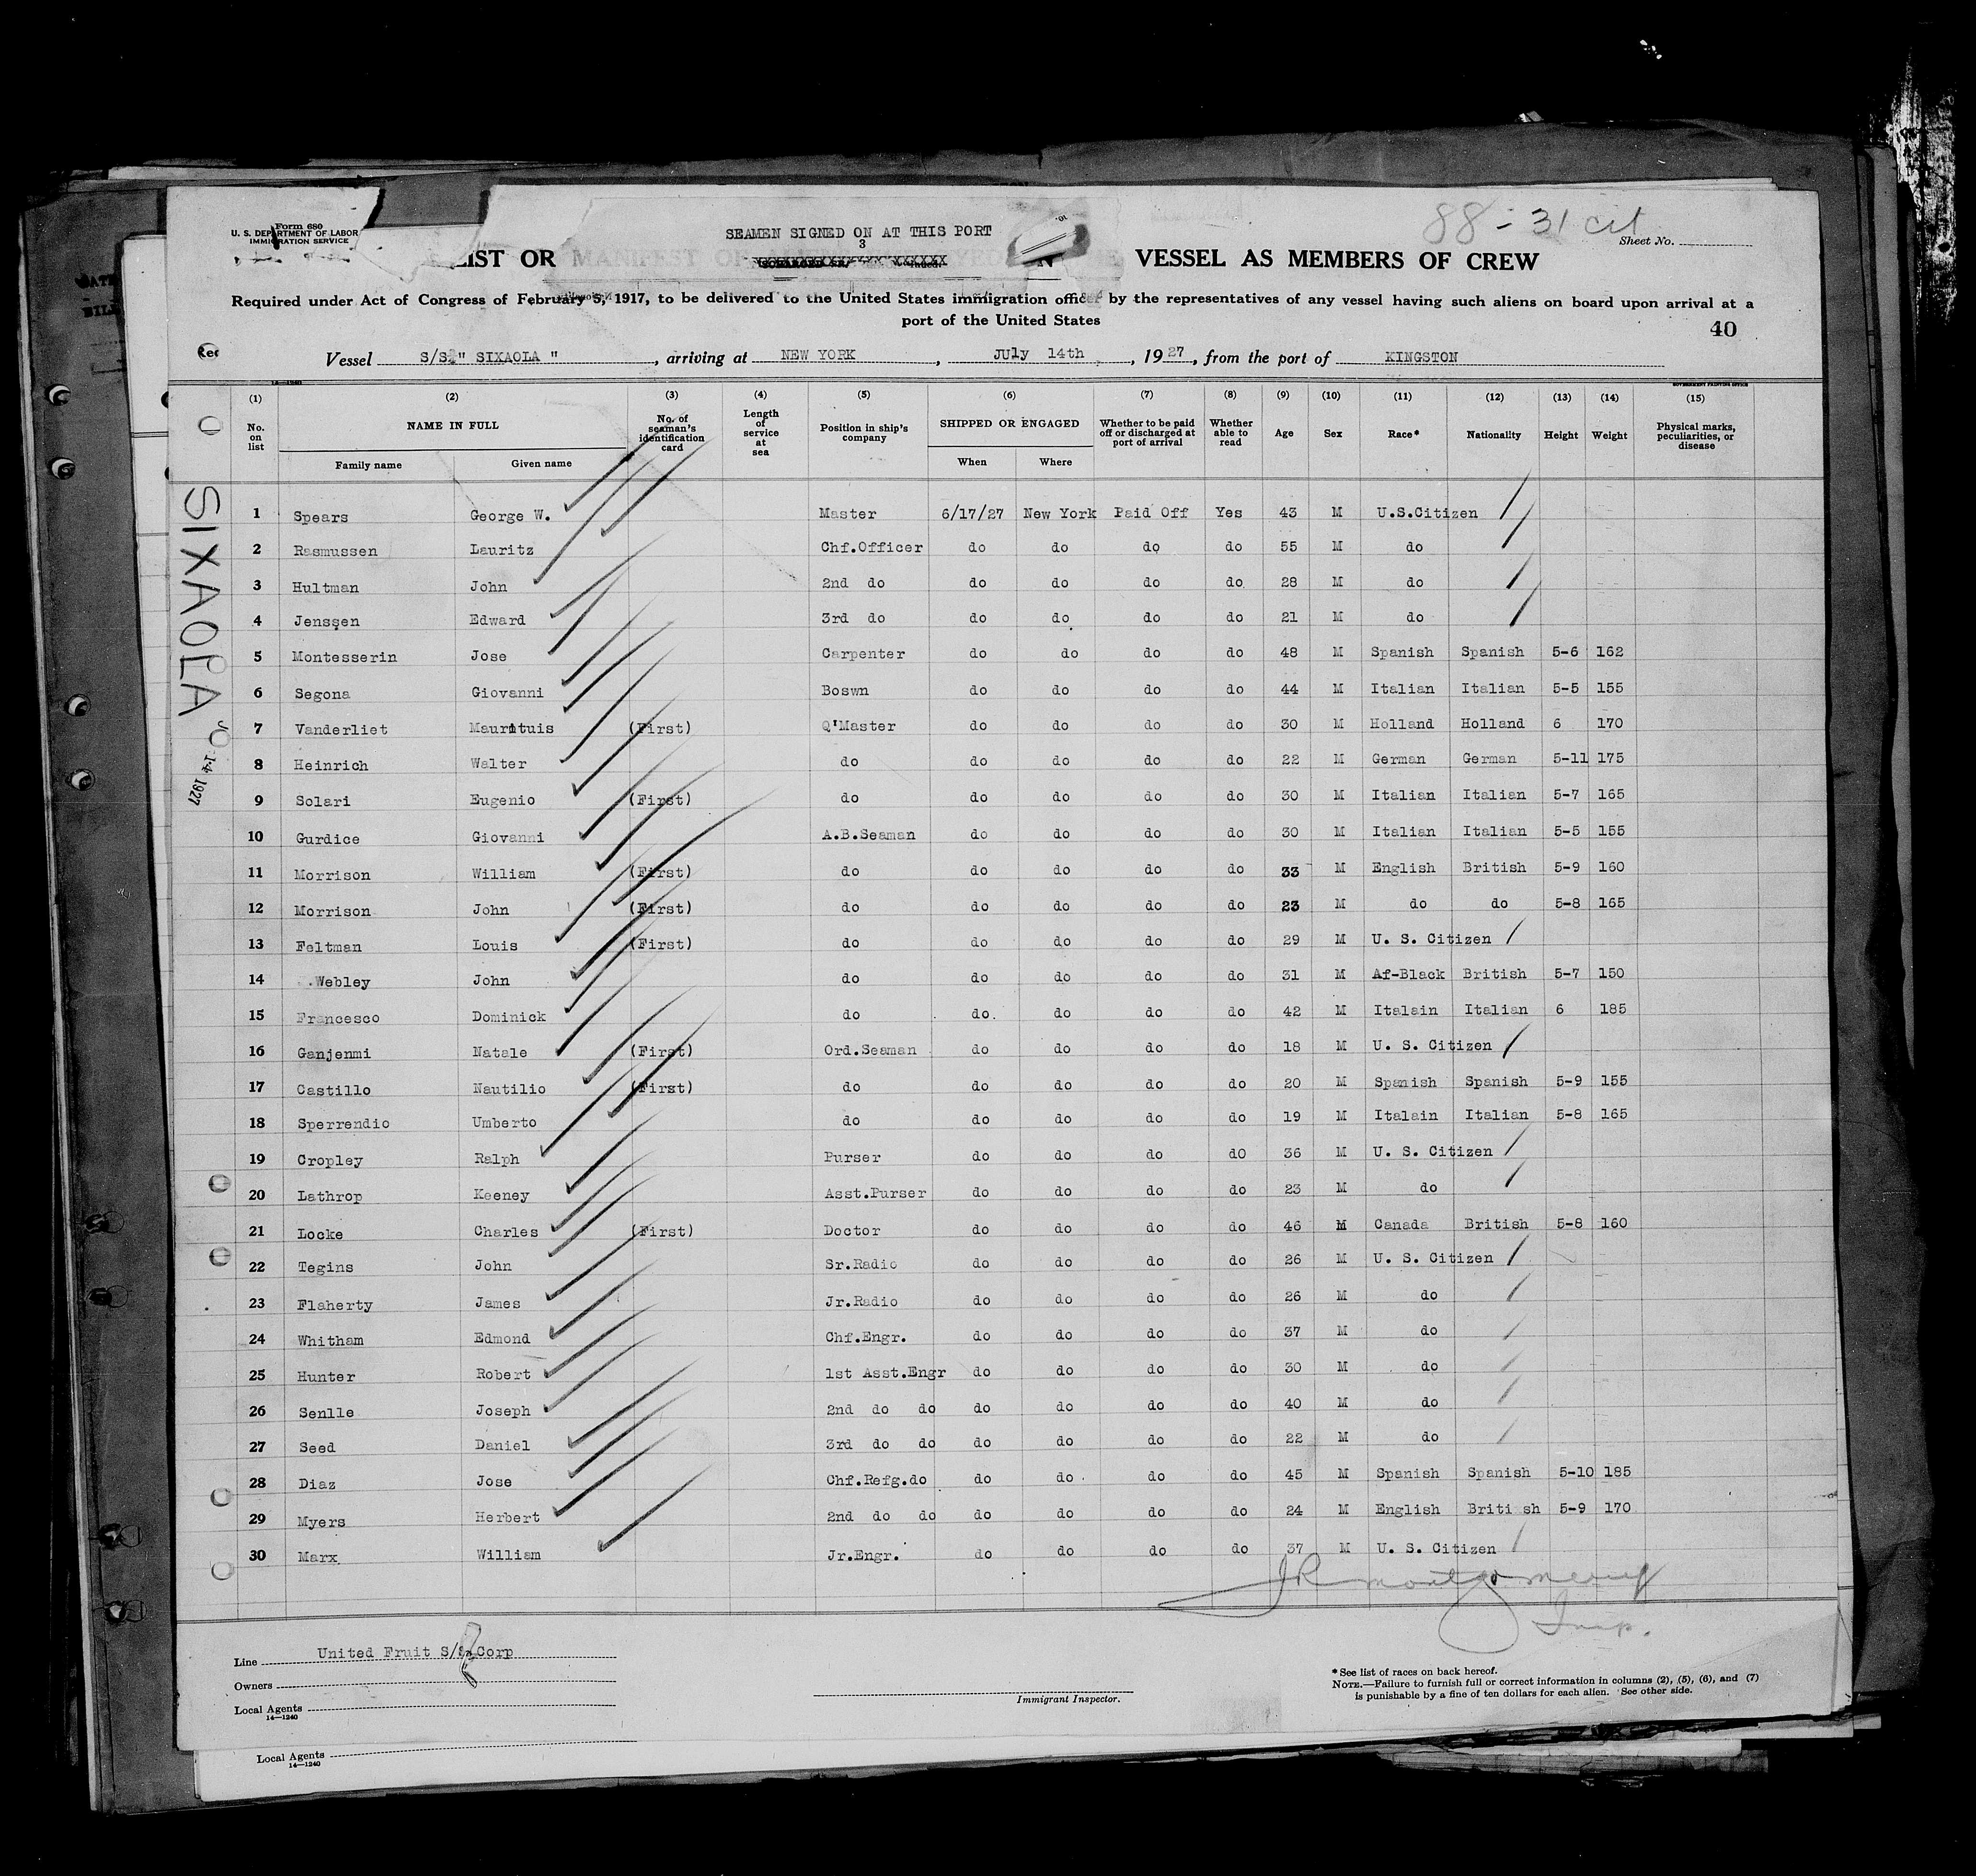 Form 680
U. S. DEPARTMENT OF LABOR
IMMIGRATION SERVICE
SEAMEN SIGNED ON AT THIS PORT
3
88 - 31 cit
Sheet No.
LIST OR MANIFEST OF VESSEL AS MEMBERS OF CREW
Required under Act of Congress of February 5, 1917, to be delivered to the United States immigration officer by the representatives of any vessel having such aliens on board upon arrival at a
port of the United States
40
Vessel S/S " SIXAOLA ", arriving at NEW YORK, July 14th, 1927, from the port of KINGSTON
14—1240
GOVERNMENT PRINTING OFFICE
(1) (2) (3) (4) (5) (6) (7) (8) (9) (10) (11) (12) (13) (14) (15)
No. on list NAME IN FULL No. of seaman's identification card Length of service at sea Position in ship's company SHIPPED OR ENGAGED Whether to be paid off or discharged at port of arrival Whether able to read Age Sex Race* Nationality Height Weight Physical marks, peculiarities, or disease
Family name Given name When Where
SIXAOLA
14 1927
1 Spears George W. Master 6/17/27 New York Paid Off Yes 43 M U.S.Citizen
2 Rasmussen Lauritz Chf.Officer do do do do 55 M do
3 Hultman John 2nd do do do do do 28 M do
4 Jenssen Edward 3rd do do do do do 21 M do
5 Montesserin Jose Carpenter do do do do 48 M Spanish Spanish 5-6 162
6 Segona Giovanni Boswn do do do do 44 M Italian Italian 5-5 155
7 Vanderliet (First) Q'Master do do do do 30 M Holland Holland 6 170
8 Heinrich Walter do do do do do 22 M German German 5-11 175
9 Solari Eugenio (First) do do do do do 30 M Italian Italian 5-7 165
10 Gurdice Giovanni A.B.Seaman do do do do 30 M Italian Italian 5-5 155
11 Morrison William (First) do do do do do 33 M English British 5-9 160
12 Morrison John (First) do do do do do 23 M do do 5-8 165
13 Feltman Louis (First) do do do do do 29 M U. S. Citizen
14 Webley John do do do do do 31 M Af-Black British 5-7 150
15 Francesco Dominick do do. do do do 42 M Italain Italian 6 185
16 Ganjenmi Natale (First) Ord.Seaman do do do do 18 M U. S. Citizen
17 Castillo Nautilio (First) do do do do do 20 M Spanish Spanish 5-9 155
18 Sperrendio Umberto do do do do do 19 M Italain Italian 5-8 165
19 Cropley Ralph Purser do do do do 36 M U. S. Citizen
20 Lathrop Keeney Asst.Purser do do do do 23 M do
21 Locke Charles (First) Doctor do do do do 46 M Canada British 5-8 160
22 Tegins John Sr.Radio do do do do 26 M U. S. Citizen
23 Flaherty James Jr.Radio do do do do 26 M do
24 Whitham Edmond Chf.Engr. do do do do 37 M do
25 Hunter Robert 1st Asst.Engr do do do do 30 M do
26 Senlle Joseph 2nd do do do do do do 40 M do
27 Seed Daniel 3rd do do do do do do 22 M do
28 Diaz Jose Chf.Refg.do do do do do 45 M Spanish Spanish 5-10 185
29 Myers Herbert 2nd do do do do do do 24 M English British 5-9 170
30 Marx William Jr.Engr. do do do do 37 M U. S. Citizen
J R Montgomery
Insp.
Line United Fruit S/S Corp
Owners
Local Agents
14—1240
Immigrant Inspector.
* See list of races on back hereof.
NOTE.—Failure to furnish full or correct information in columns (2), (5), (6), and (7)
is punishable by a fine of ten dollars for each alien. See other side.
Local Agents
14—1240